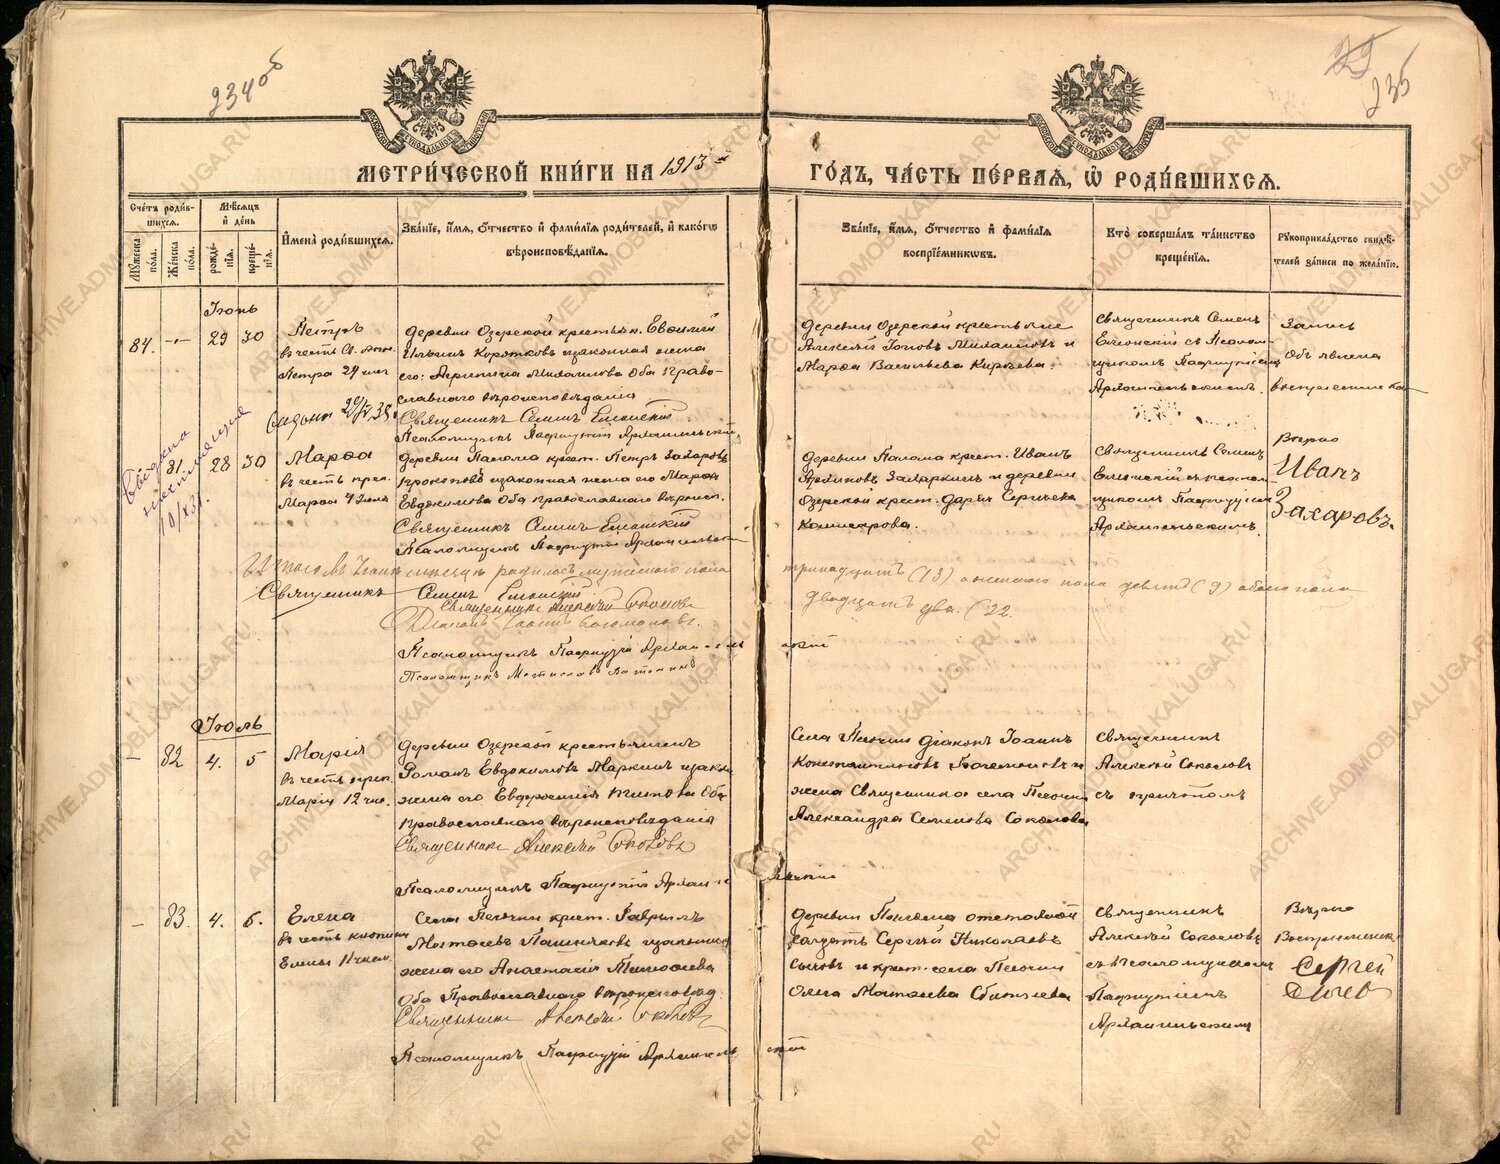 234об
235
МЕТРИ́ЧЕСКОЙ КНИ́ГИ НА 1913 й
ГО́ДЪ, ЧА́СТЬ ПЕ́РВАѦ, Ѡ РОДИ́ВШИХСѦ.
Сче́тъ роди́в-
шихсѧ.
Мꙋ́жеска по́ла.
Же́нска по́ла.
Мѣ́сѧцъ и҆ де́нь
рожде́нїѧ.
креще́нїѧ.
И҆мена̀ роди́вшихсѧ.
Зва́нїе, и҆́мѧ, ѻ҆́тчество и҆ фами́лїѧ роди́телей, и҆ како́гѡ
вѣроисповѣ́данїѧ.
Зва́нїе, и҆́мѧ, ѻ҆́тчество и҆ фами́лїѧ
воспрїе́мникѡвъ.
Кто̀ соверша́лъ та́инство
креще́нїѧ.
Рꙋкоприкла́дство свидѣ́-
телей за́писи по жела́нїю.
Іюнь
84. -"- 29 30
Петръ
въ честь св. апос.
Петра 29 июн
деревни Озерской крестьян. Евѳимій
Ильинъ Коротковъ изаконная жена
его: Агрипина Михаилова Оба Право-
славнаго вѣроисповѣданія
Священникъ Семенъ Елионскій
Псаломщикъ Пафнутій Архангельскій
деревни Озерской крестьяне
Алексѣй Іоновъ Михаиловъ и
Марѳа Васильева Кирѣева.
Священникъ Семенъ
Елионскій съ Псалом-
щикомъ Пафнутіемъ
Архангельскимъ.
Запись
Объявлена
81. 28 30
10/X 31.
Марѳа
въ честь прав.
Марѳы 4 июня
крест. Петръ Захаровъ
Прокоповъ изаконная жена его Марѳа
Евдокимова Оба православнаго вѣроисп.
Священникъ Семенъ Елионскій
Псаломщикъ Пафнутій Архангельскій
крест. Иванъ
Захаркинъ и деревни
Озерской крест. Дарья Сергѣева
Комисарова.
Священникъ Семенъ
Елионскій съ псалом-
щикомъ Пафнутіем
Архангельскимъ
Вѣрно
Иванъ
Захаровъ.
Итого въ Іюнѣ мѣсяцѣ родилось мужескаго пола
тринадцать (13) а женскаго пола девять (9) обоего пола
двадцать два. (22.
Священникъ Семенъ Елионскій
Священникъ Алексѣй Соколовъ
Діаконъ Іоаннъ Богомоловъ.
Псаломщикъ Пафнутій Архангельскій
Псаломщикъ Мстиславъ Ватолинъ
Іюль
- 82 4. 5
Марія
въ честь прав.
Маріи 12 чис.
деревни Озерской крестьянинъ
Романъ Евдокимовъ Маркинъ изакон.
жена его Евфросинія Титова Оба
православнаго вѣроисповѣданія
Священникъ Алексѣй Соколовъ
Псаломщикъ Пафнутій Архангельскій
Села Песочни діаконъ Іоаннъ
Константиновъ Богомоловъ и
жена Священника села Песочни
Александра Семенова Соколова
Священникъ
Алексѣй Соколовъ
съ причтомъ
- 83. 4. 6.
Елена
въ честь княгини
Елены 11 числ.
Села Песочни крест. Гаврiилъ
Матѳеевъ изаконная
жена его Анастасія Тимоѳеева
Оба Православнаго вѣроисповѣд.
Священникъ Алексѣй Соколовъ
Псаломщикъ Пафнутій Архангельскій
отставной
солдатъ Сергѣй Николаевъ
Сычовъ и крест. села Песочни
Ольга Матѳеева
Священникъ
Алексѣй Соколовъ
съ Псаломщикомъ
Пафнутіемъ
Архангельскимъ
Вѣрно
Воспріемникъ
Сергей
Сычев
ARCHIVE.ADMOBLKALUGA.RU